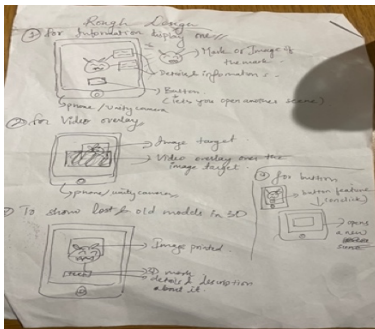 Rough Design
① for Information display one //
Mask or Image of
the mask.
Details & information.
Button
(lets you open another scene)
phone / Unity camera
② for Video overlay
Image target
Video overlay over the
image target.
phone / unity camera
③ To show lost & old models in 3D
Image printed
3D mask
details & description
about it.
④ for button
button feature
(onclick)
opens
a new